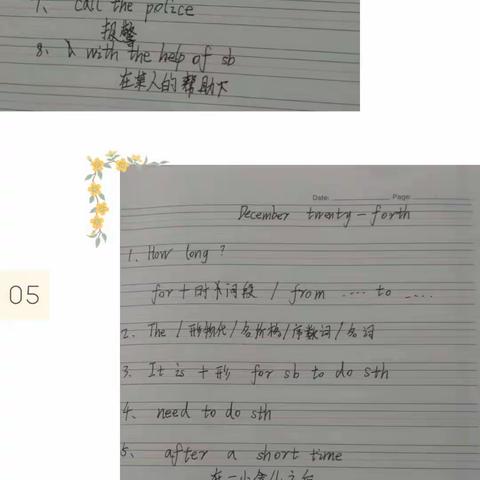 7、 call the police
报警
8、 with the help of sb
在某人的帮助下
05
Date: Page:
December twenty-forth
1. How long?
for+时间段 / from .... to ....
2. The / 形物代 / 名所格 / 序数词 / 名词
3. It is + 形 for sb to do sth
4. need to do sth
5. after a short time
在一小会儿之后